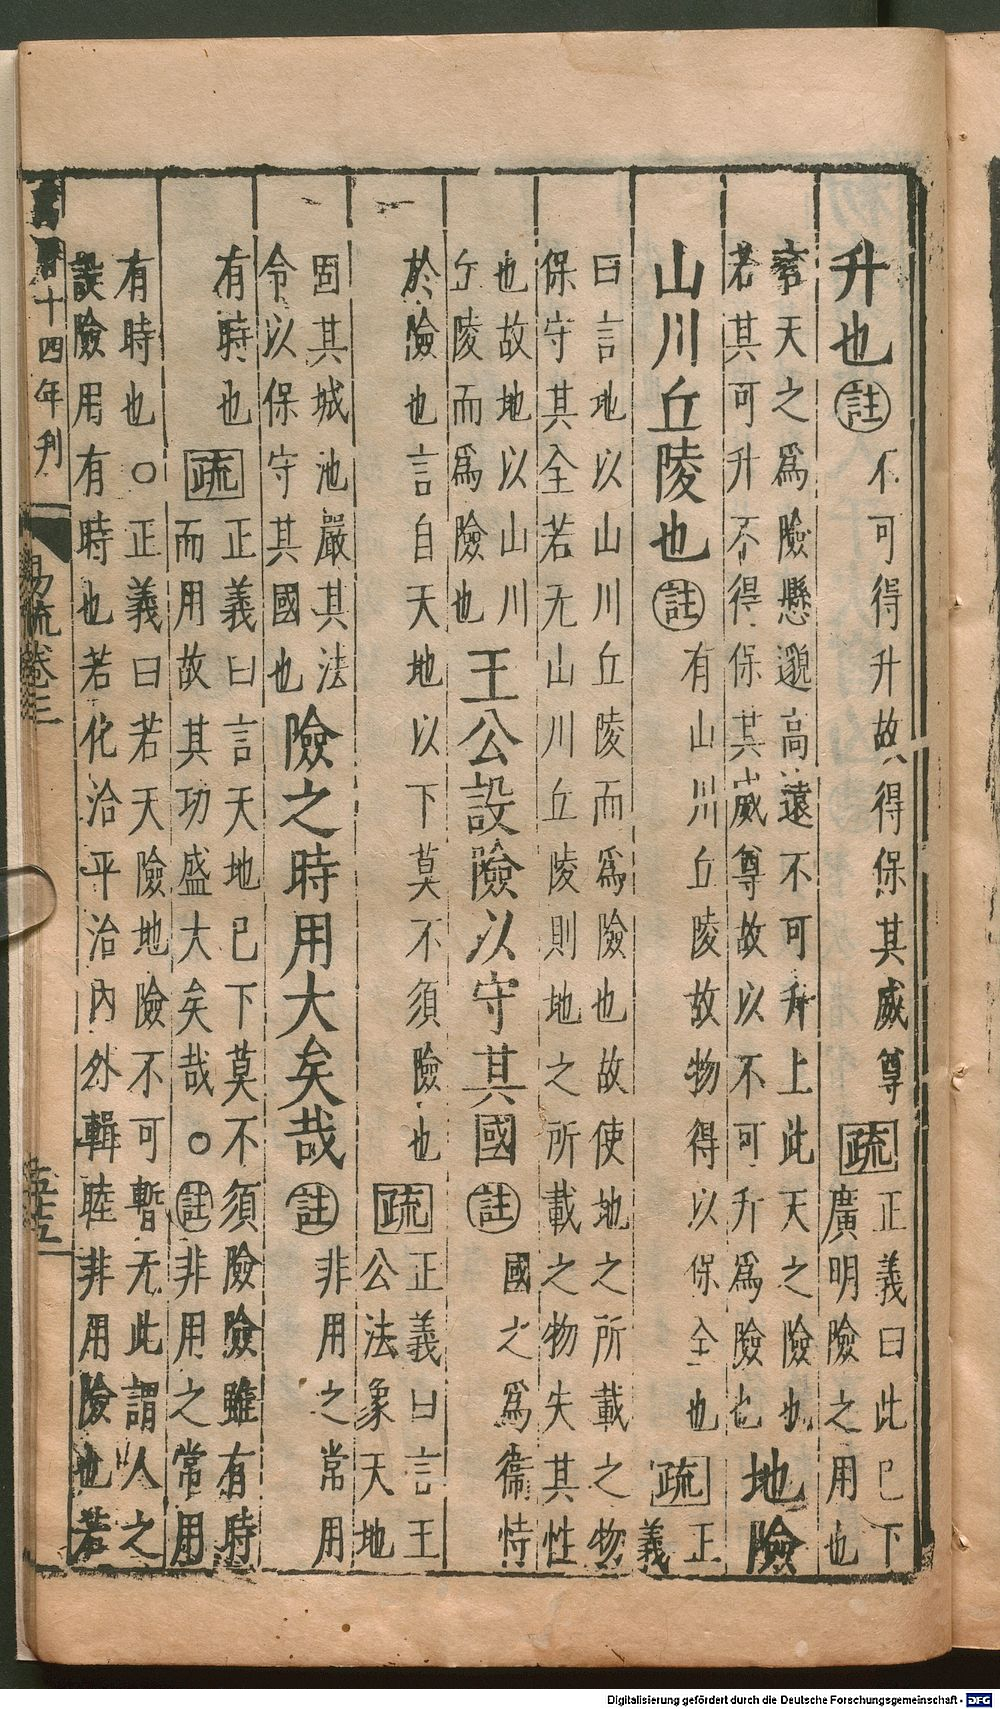 升也 註 不可得升故得保其威尊 疏 正義曰此已下廣明險之用也
言天之爲險懸邈高遠不可升上此天之險也
若其可升不得保其威尊故以不可升爲險也 地險
山川丘陵也 註 有山川丘陵故物得以保全也 疏 正義
曰言地以山川丘陵而爲險也故使地之所載之物
保守其全若无山川丘陵則地之所載之物失其性
也故地以山川丘陵而爲險也 王公設險以守其國 註 國之爲衞恃
於險也言自天地以下莫不須險也 疏 正義曰言王公法象天地
固其城池嚴其法令以保守其國也 險之時用大矣哉 註 非用之常用
有時也 疏 正義曰言天地已下莫不須險險雖有時
而用故其功盛大矣哉○註非用之常用
有時也○正義曰若天險地險不可暫无此謂人之
設險用有時也若化洽平治內外輯睦非用險也若
曆十四年刊
易疏卷三
Digitalisierung gefördert durch die Deutsche Forschungsgemeinschaft - DFG